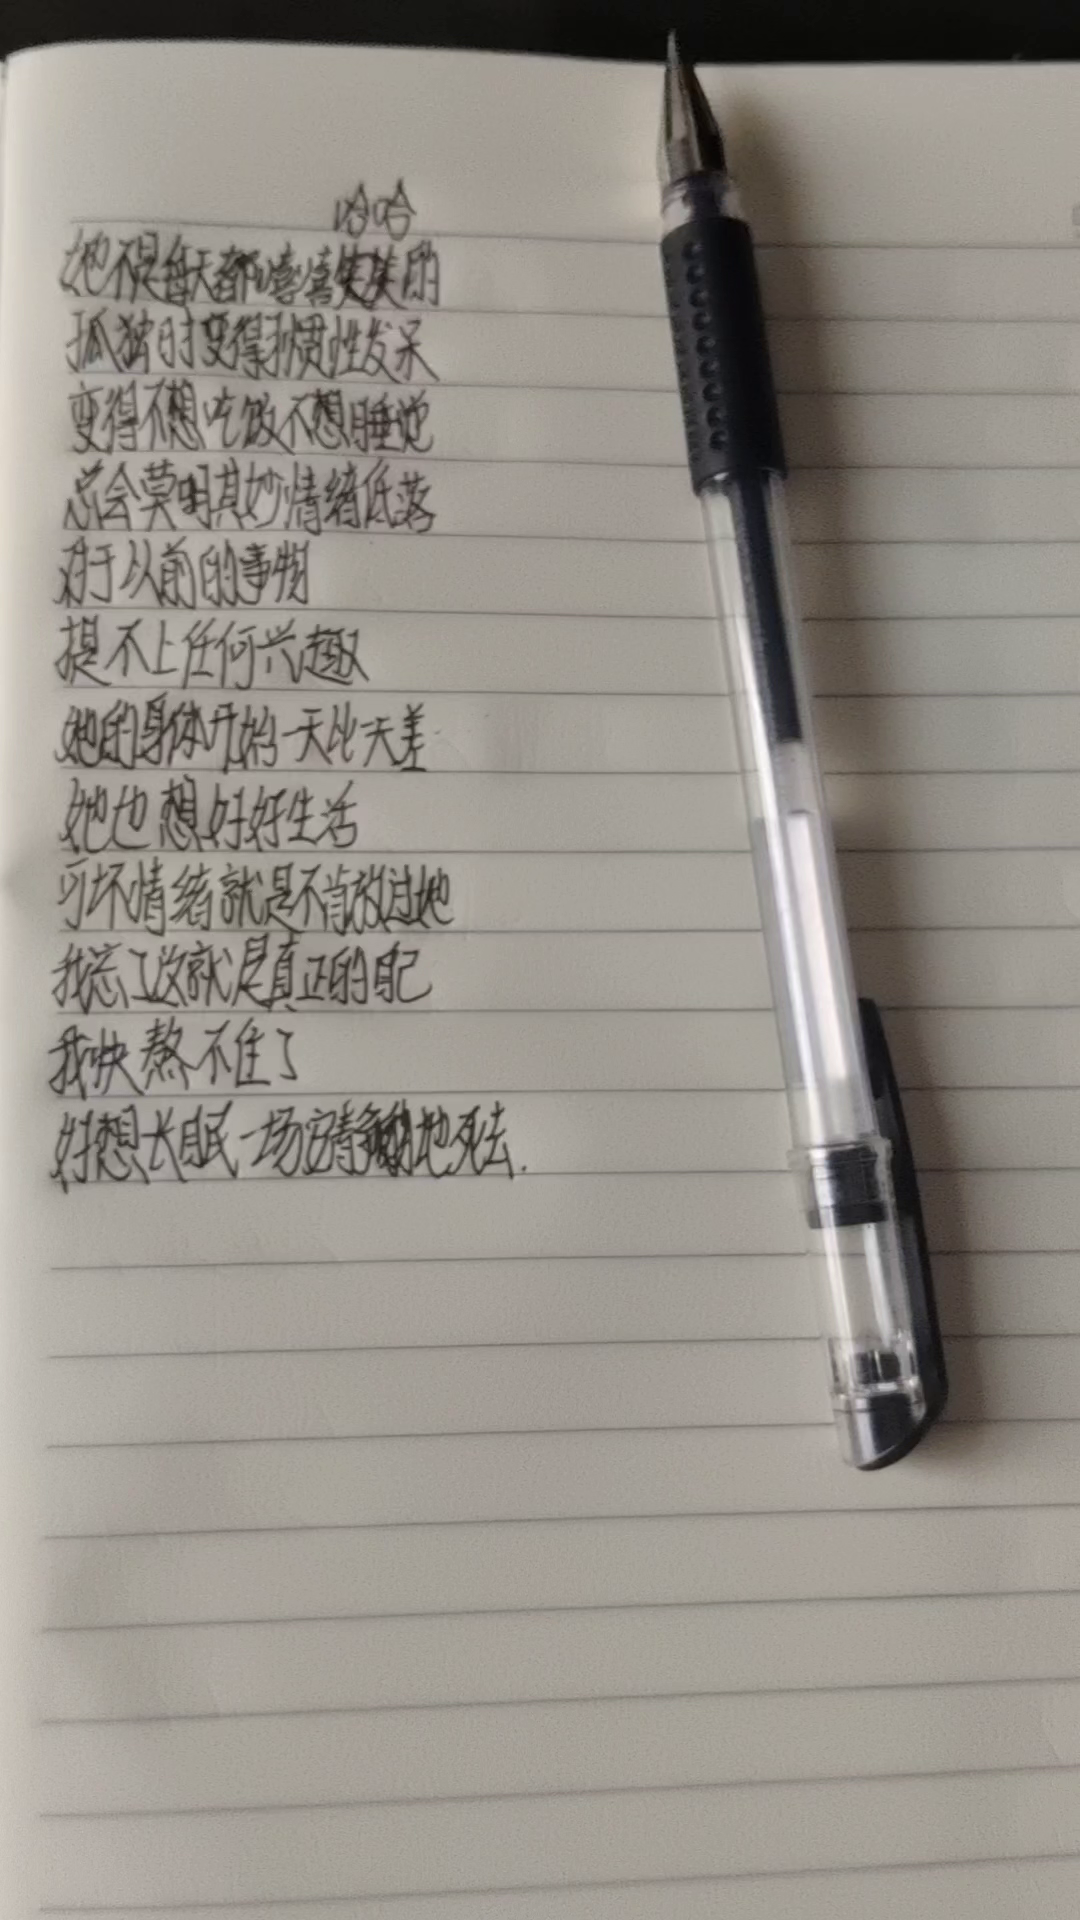 哈哈
她不是每天都嘻嘻笑笑的
孤独时变得习惯性发呆
变得不想吃饭不想睡觉
总会莫明其妙情绪低落
对于以前的事物
提不上任何兴趣
她的身体开始一天比一天差
她也想好好生活
可坏情绪就是不肯放过她
我忘了这就是真正的自己
我快熬不住了
好想长眠一场安静地死去.